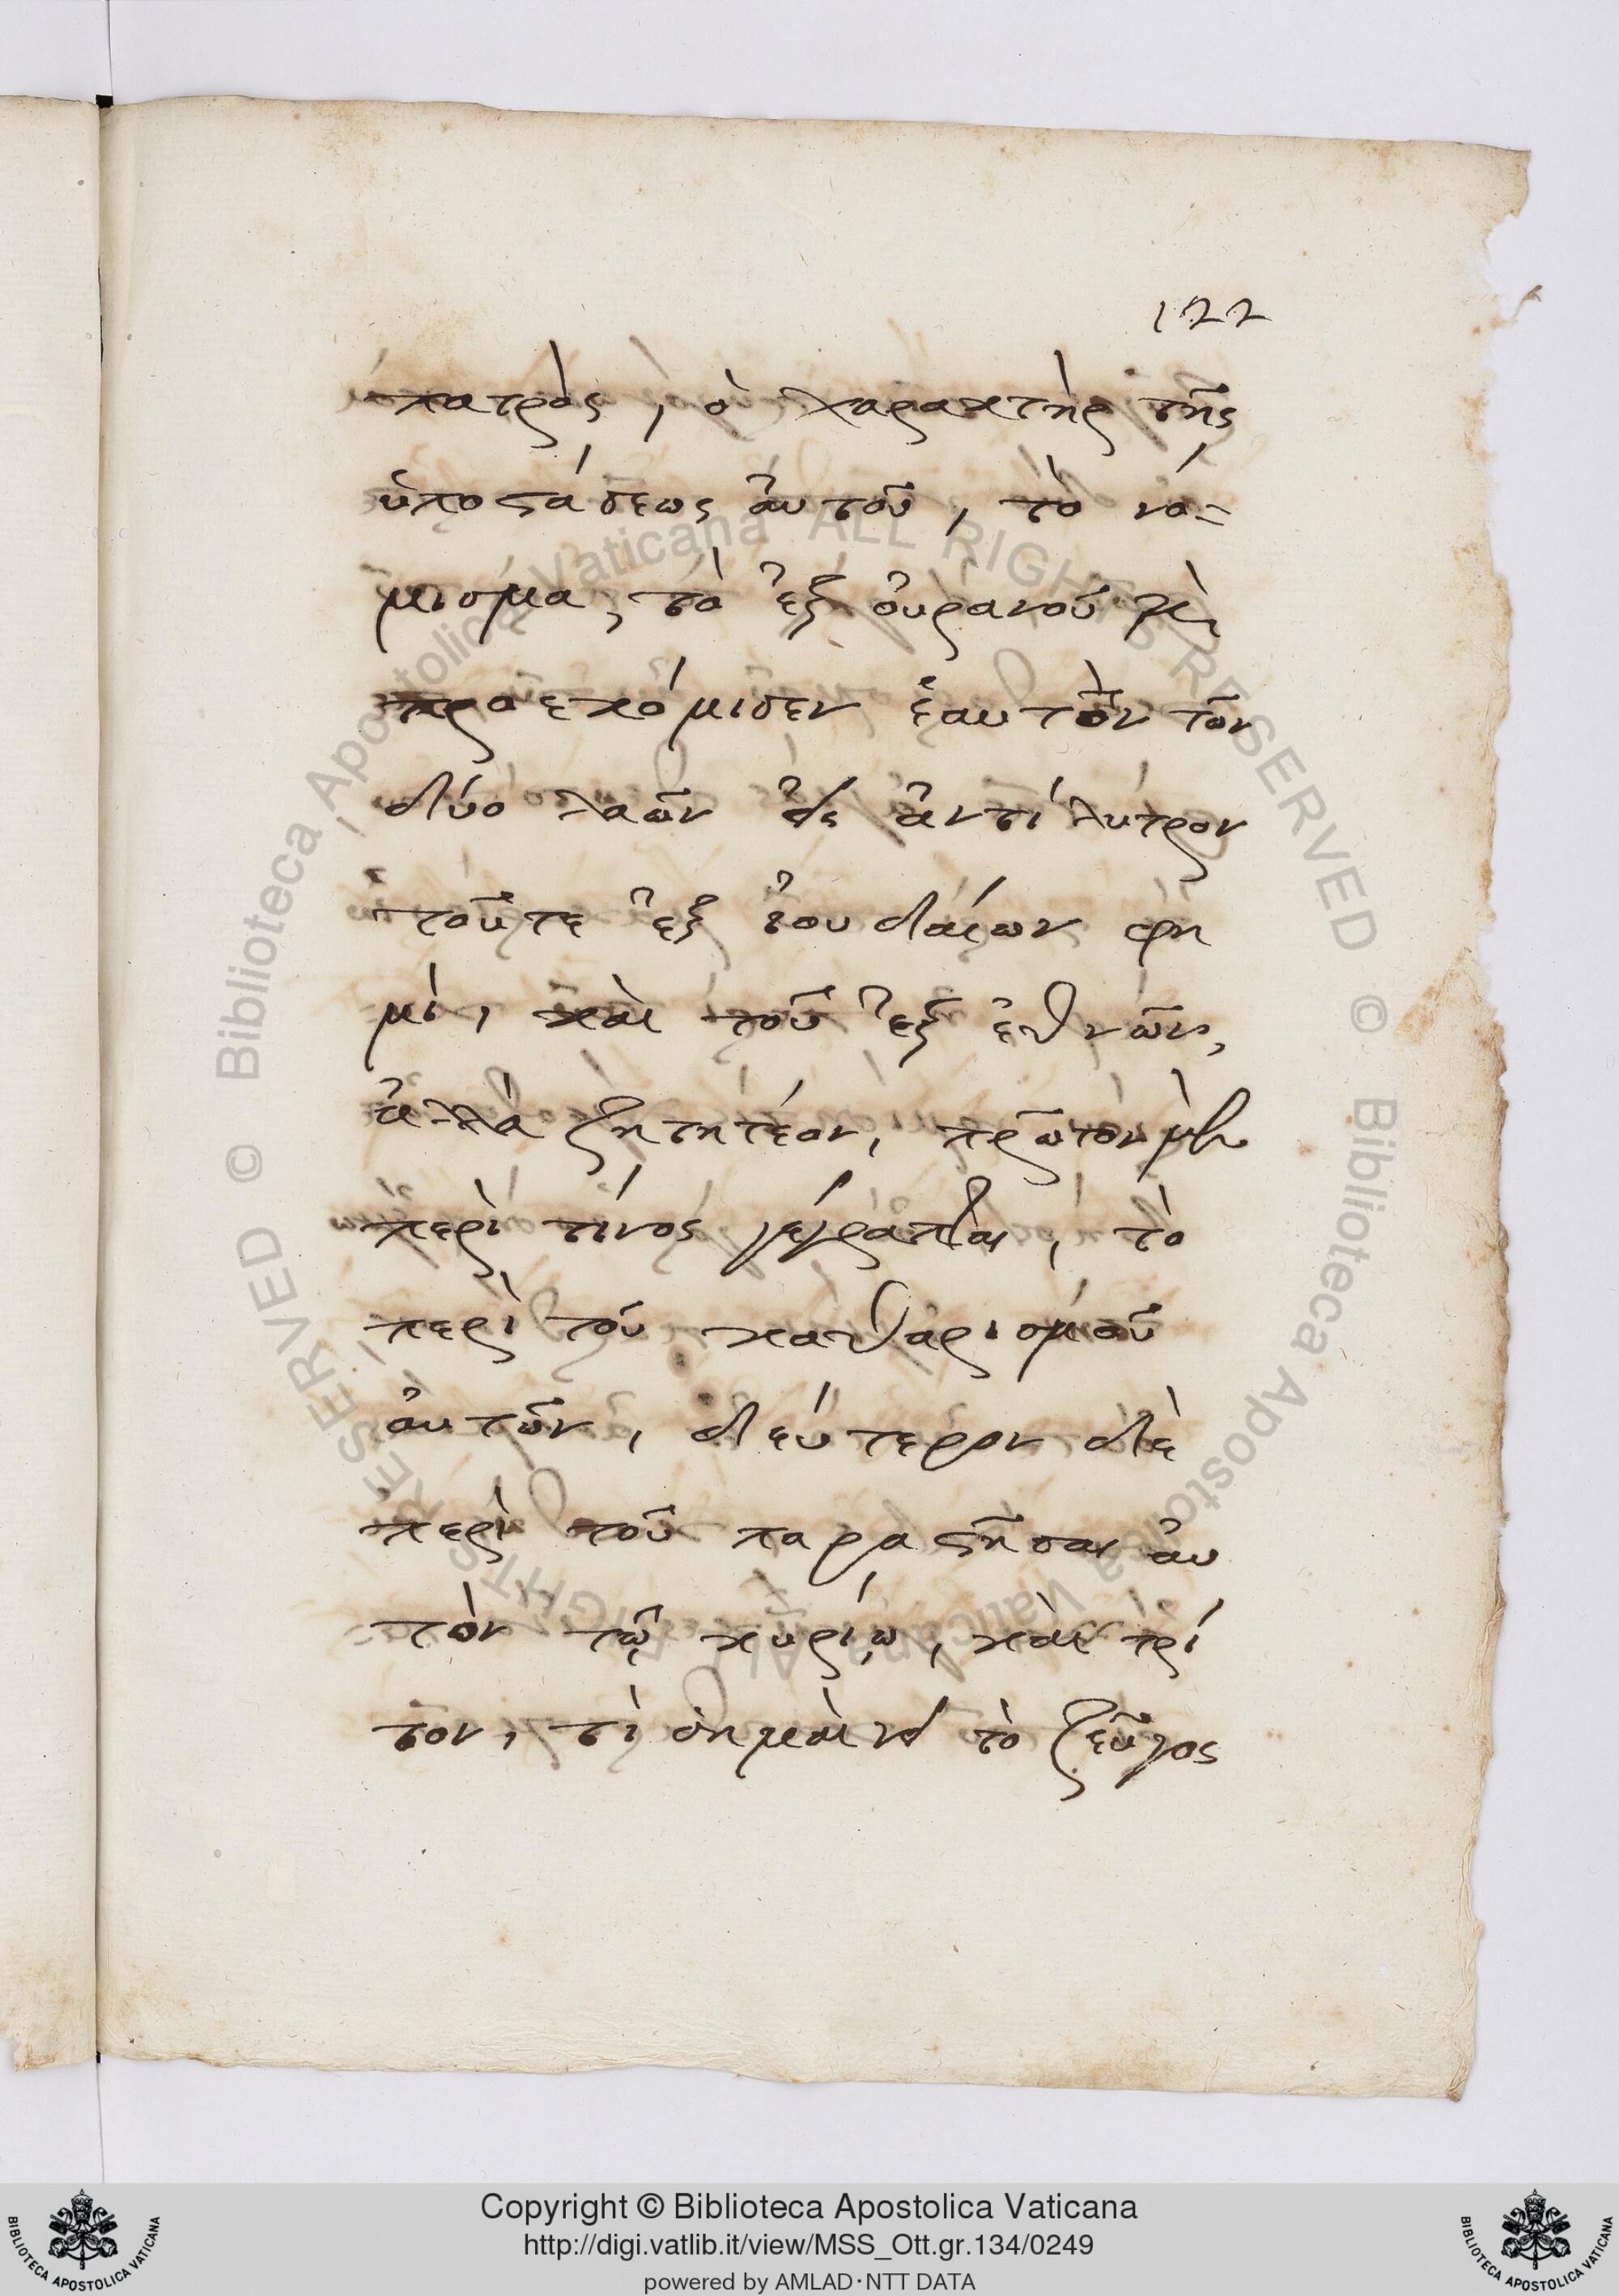 122
πατρὸς, ὁ χαρακτὴρ τῆς
ὑποστάσεως ἀυτοῦ, τὸ νό=
μισμα, τὸ ἐξ ὀυρανοῦ κ
προεκόμισεν ἑαυτὸν τῶν
δύο λαῶν εἰς ἀντίλυτρον
τοῦτε ἐξ ἰουδαίων φη
μὶ, καὶ τοῦ ἐξ ἐθνῶν,
ἀλλὰ ζητητέον, πρῶτον μὲν
περὶ τίνος γέγραπται, τὸ
περὶ τοῦ καθαρισμοῦ
ἀυτῶν, δεύτερον δὲ
περὶ τοῦ παραστῆσαι ἀυ
τὸν τῶ κυρίω, καὶ τρί
τον, τὶ σημαὶνει τὸ ζεῦγος
© Biblioteca Apostolica Vaticana ALL RIGHTS RESERVED
© Biblioteca Apostolica Vaticana ALL RIGHTS RESERVED
Copyright © Biblioteca Apostolica Vaticana
http://digi.vatlib.it/view/MSS_Ott.gr.134/0249
powered by AMLAD·NTT DATA
BIBLIOTECA APOSTOLICA VATICANA
BIBLIOTECA APOSTOLICA VATICANA